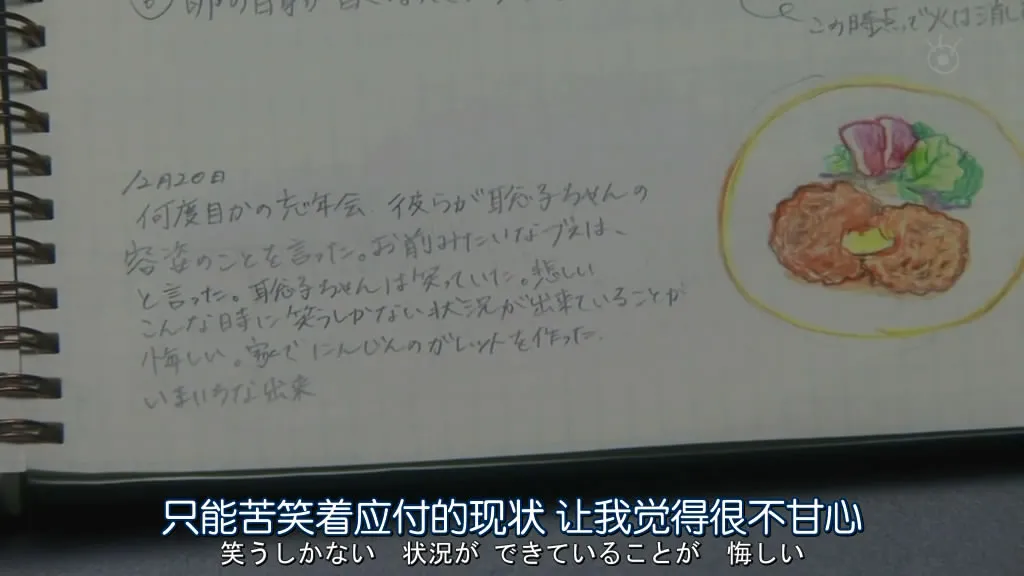 この時点で火は消し
12月20日
何度目かの忘年会 彼らが聡子ちゃんの
容姿のことを言った。お前みたいなブスは、
と言った。聡子ちゃんは笑っていた。悲しい
こんな時に笑うしかない状況が出来ていることが
悔しい。家でにんじんのガレットを作った.
いまいちな出来
只能苦笑着应付的现状 让我觉得很不甘心
笑うしかない 状況が できていることが 悔しい